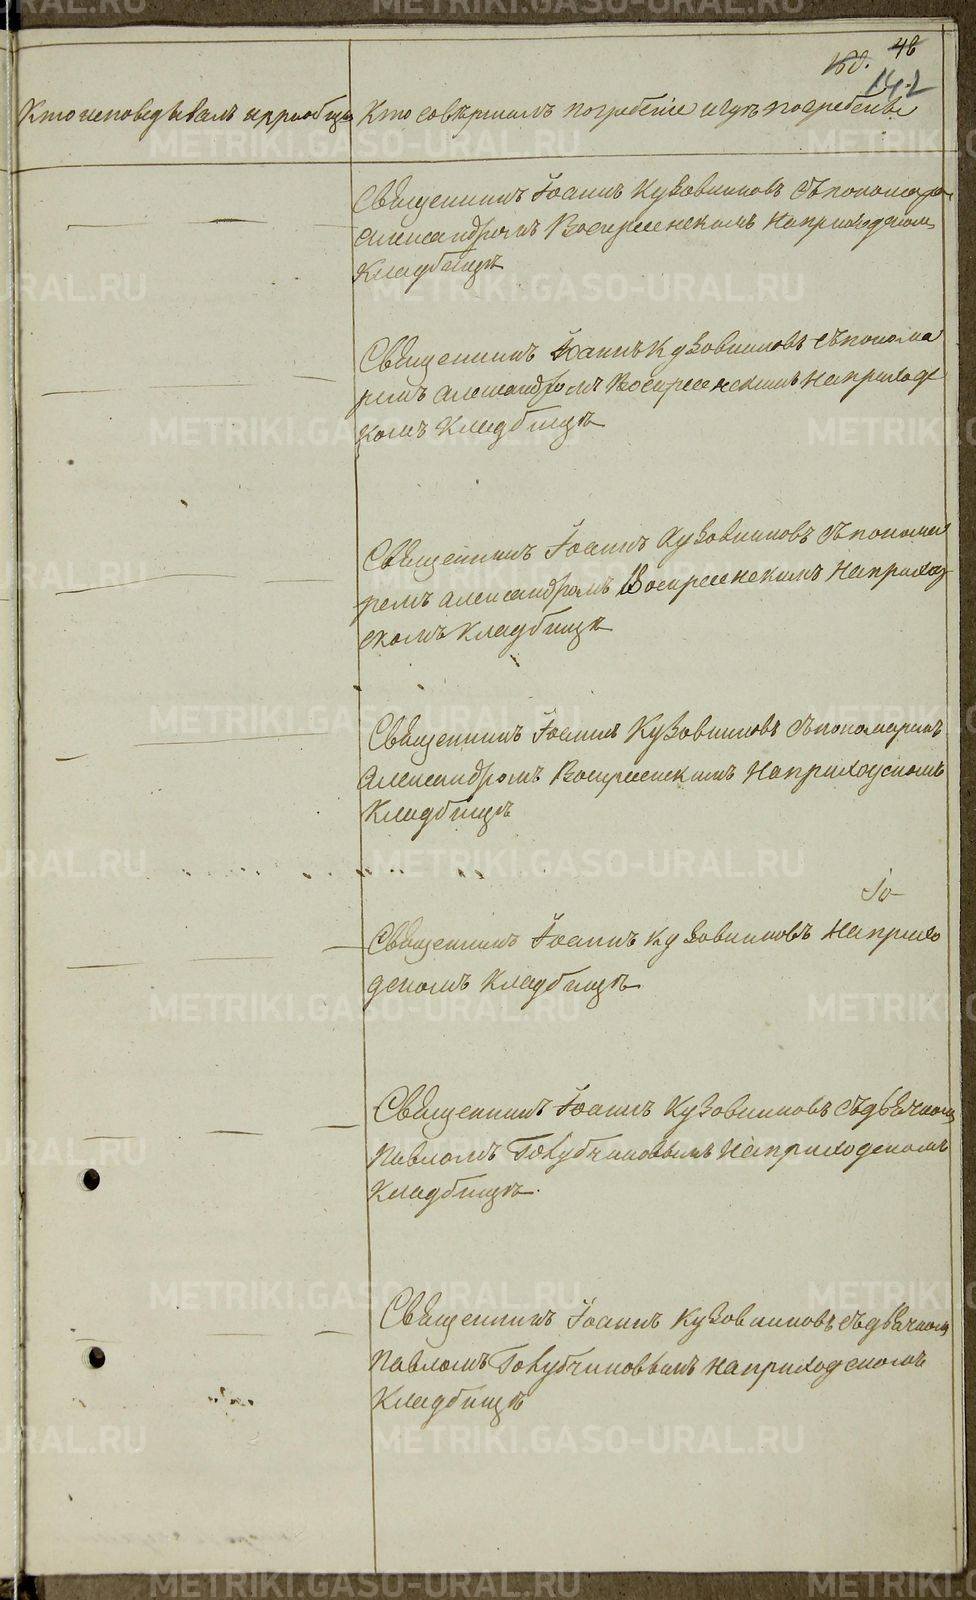 48
142
Кто исповедывалъ и приобщ.
Кто совершалъ погребенiе и гдѣ погребены
Священникъ Iоаннъ Кузовниковъ съ пономаре
Александромъ Воскресенскимъ На приходском
Кладбищѣ
Священникъ Iоаннъ Кузовниковъ съ понома
ремъ Александромъ Воскресенскимъ На приходс
комъ Кладбищѣ
Священникъ Iоаннъ Кузовниковъ съ понома
ремъ Александромъ Воскресенскимъ На приход
скомъ Кладбищѣ
Священникъ Iоаннъ Кузовниковъ съ пономаремъ
Александромъ Воскресенскимъ На приходскомъ
Кладбищѣ
Священникъ Iоаннъ Кузовниковъ На прихо
дскомъ Кладбищѣ
Священникъ Iоаннъ Кузовниковъ съ дьячком
Павломъ Голубчиковымъ На приходскомъ
Кладбищѣ.
Священникъ Iоаннъ Кузовниковъ съ дьячком
Павломъ Голубчиковымъ на приходскомъ
Кладбищѣ
METRIKI.GASO-URAL.RU